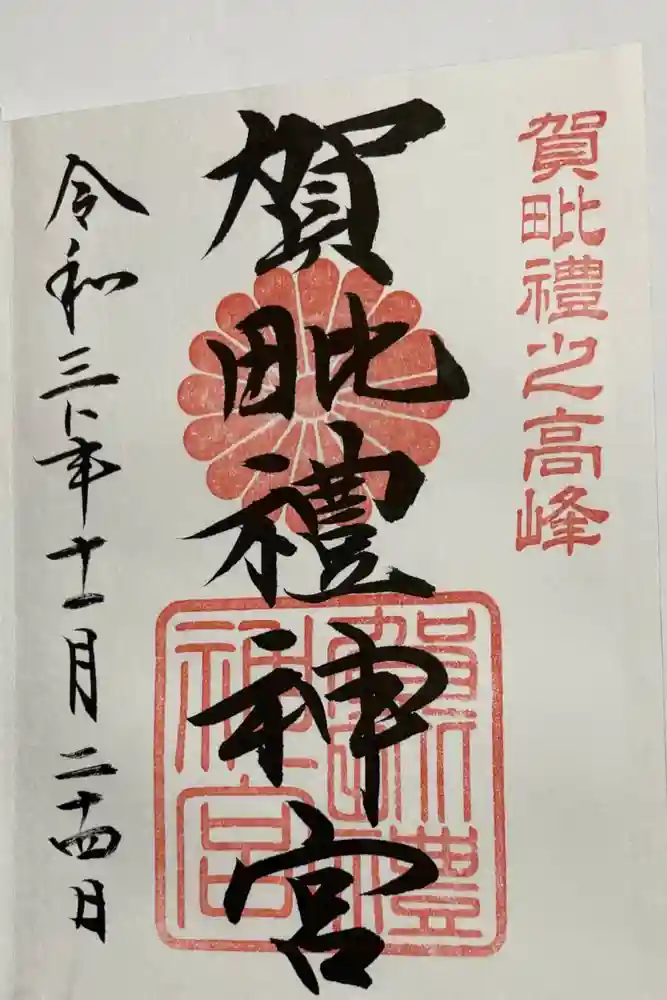 賀毗禮之高峰
賀毗禮神宮
賀毗禮神宮
令和三年十一月二十四日